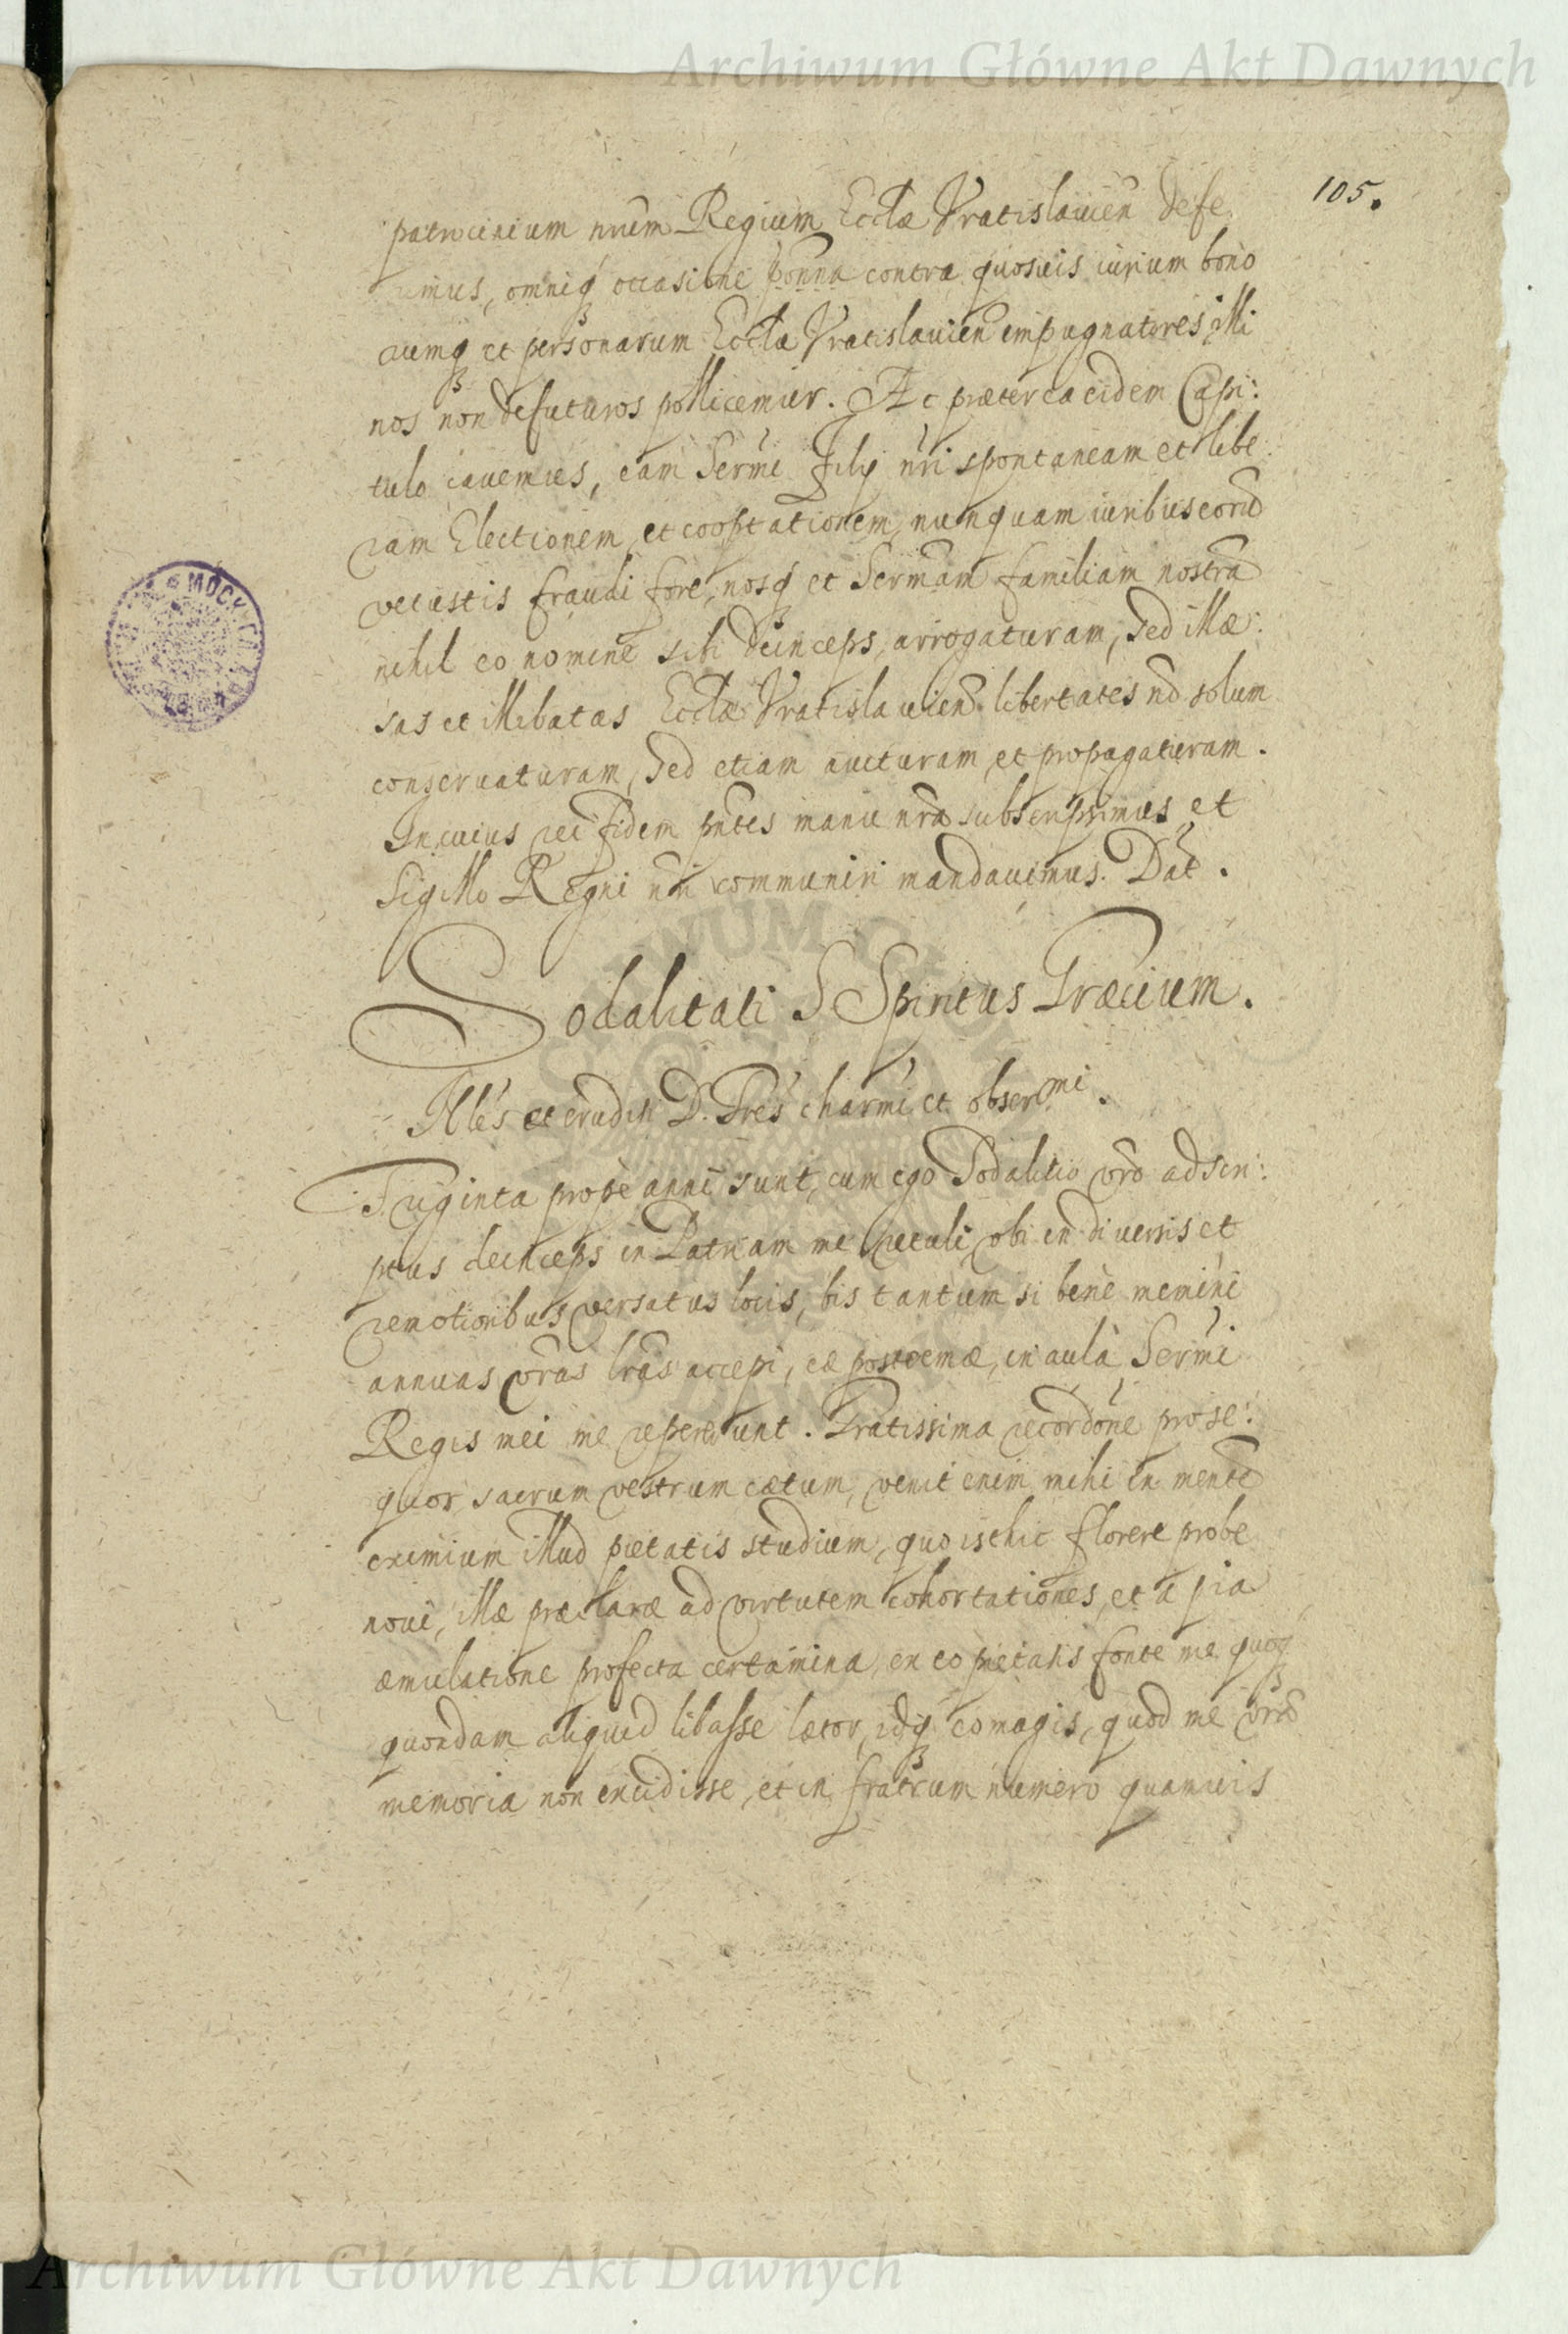 Archiwum Główne Akt Dawnych
105.
patrocinium nrum Regium Eccłae Vratislauien defe
imus, omniq occasione contra quosuis iurium bono
rumq et personarum Eccłae Vratislauien impugnatores illi
nos non defuturos pollicemur. Ac præterea eidem Capi:
tulo cauemus, eam Sermi Filij nri spontaneam et libe
ram Electionem et cooptationem nunquam iuribus eorū
vetustis fraudi fore, nosq et Sermam familiam nostrā
nihil eo nomine sibi deinceps arrogaturam, sed illæ:
sas et illibatas Eccłae Vratislauien libertates nō solum
conseruaturam, sed etiam aucturam et propagaturam.
In cuius rei fidem pntes manu nrā subscripsimus et
Sigillo Regni nri communiri mandauimus. Dat.
Sodalitati S Spiritus Græcium.
Illes et eruditi D. Fres charmi et obsermi.
Triginta prope anni sunt, cum ego Sodalitio vro adscri:
ptus deinceps in Patriam me retuli, ubi in diuersis et
remotioribus versatus locis, bis tantum si bene memini
annuas vras lras accepi, eæ postremæ, in aulà Sermi
Regis mei me repererunt. Gratissima recordōne prose:
quor sacrum vestrum cætum, venit enim mihi in mentē
eximium illud pietatis studium, quo isthic florere probe
noui, illæ præclaræ ad virtutem cohortationes, et à pia
æmulatione profecta certamina, en eo pietatis fonte me quoq
quondam aliquid libasse lætor, idq eo magis, quod me vrā
memoria non excidisse, et in fratrum numero quamuis
Archiwum Główne Akt Dawnych